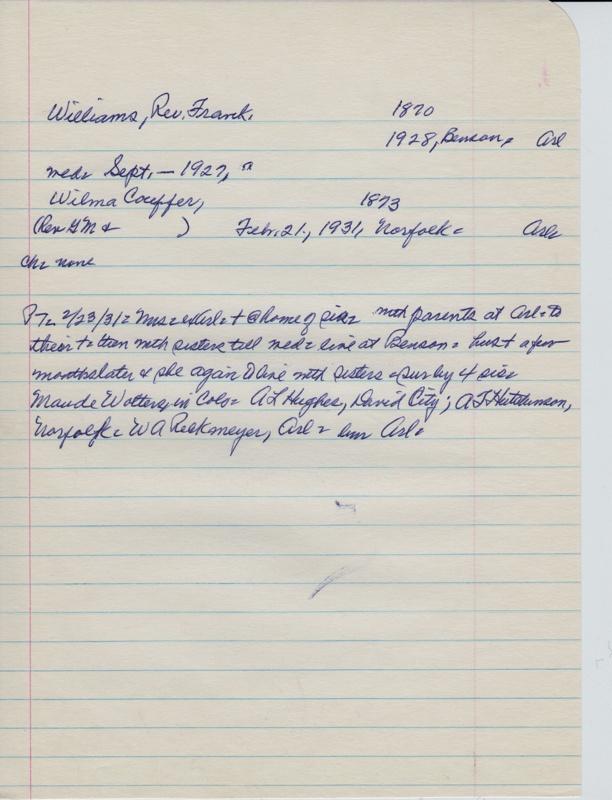 Williams, Rev. Frank. 1870
1928, Benson, Arl
med= Sept. — 1927,
Wilma Couffer, 1873
(Rev G M & ) Feb. 21, 1931, Norfolk= Arl=
ch= none
2/23/31= Mrs= + @ home of sis= with parents at Arl= to
their += then with sisters till med= live at Benson= hus + a few
months later & she again to live with sisters = sur by 4 sis=
Maude Wolters, in Cols= A L Hughes, David City; A F Hutchinson,
Norfolk= W A Reckmeyer, Arl= bur Arl=